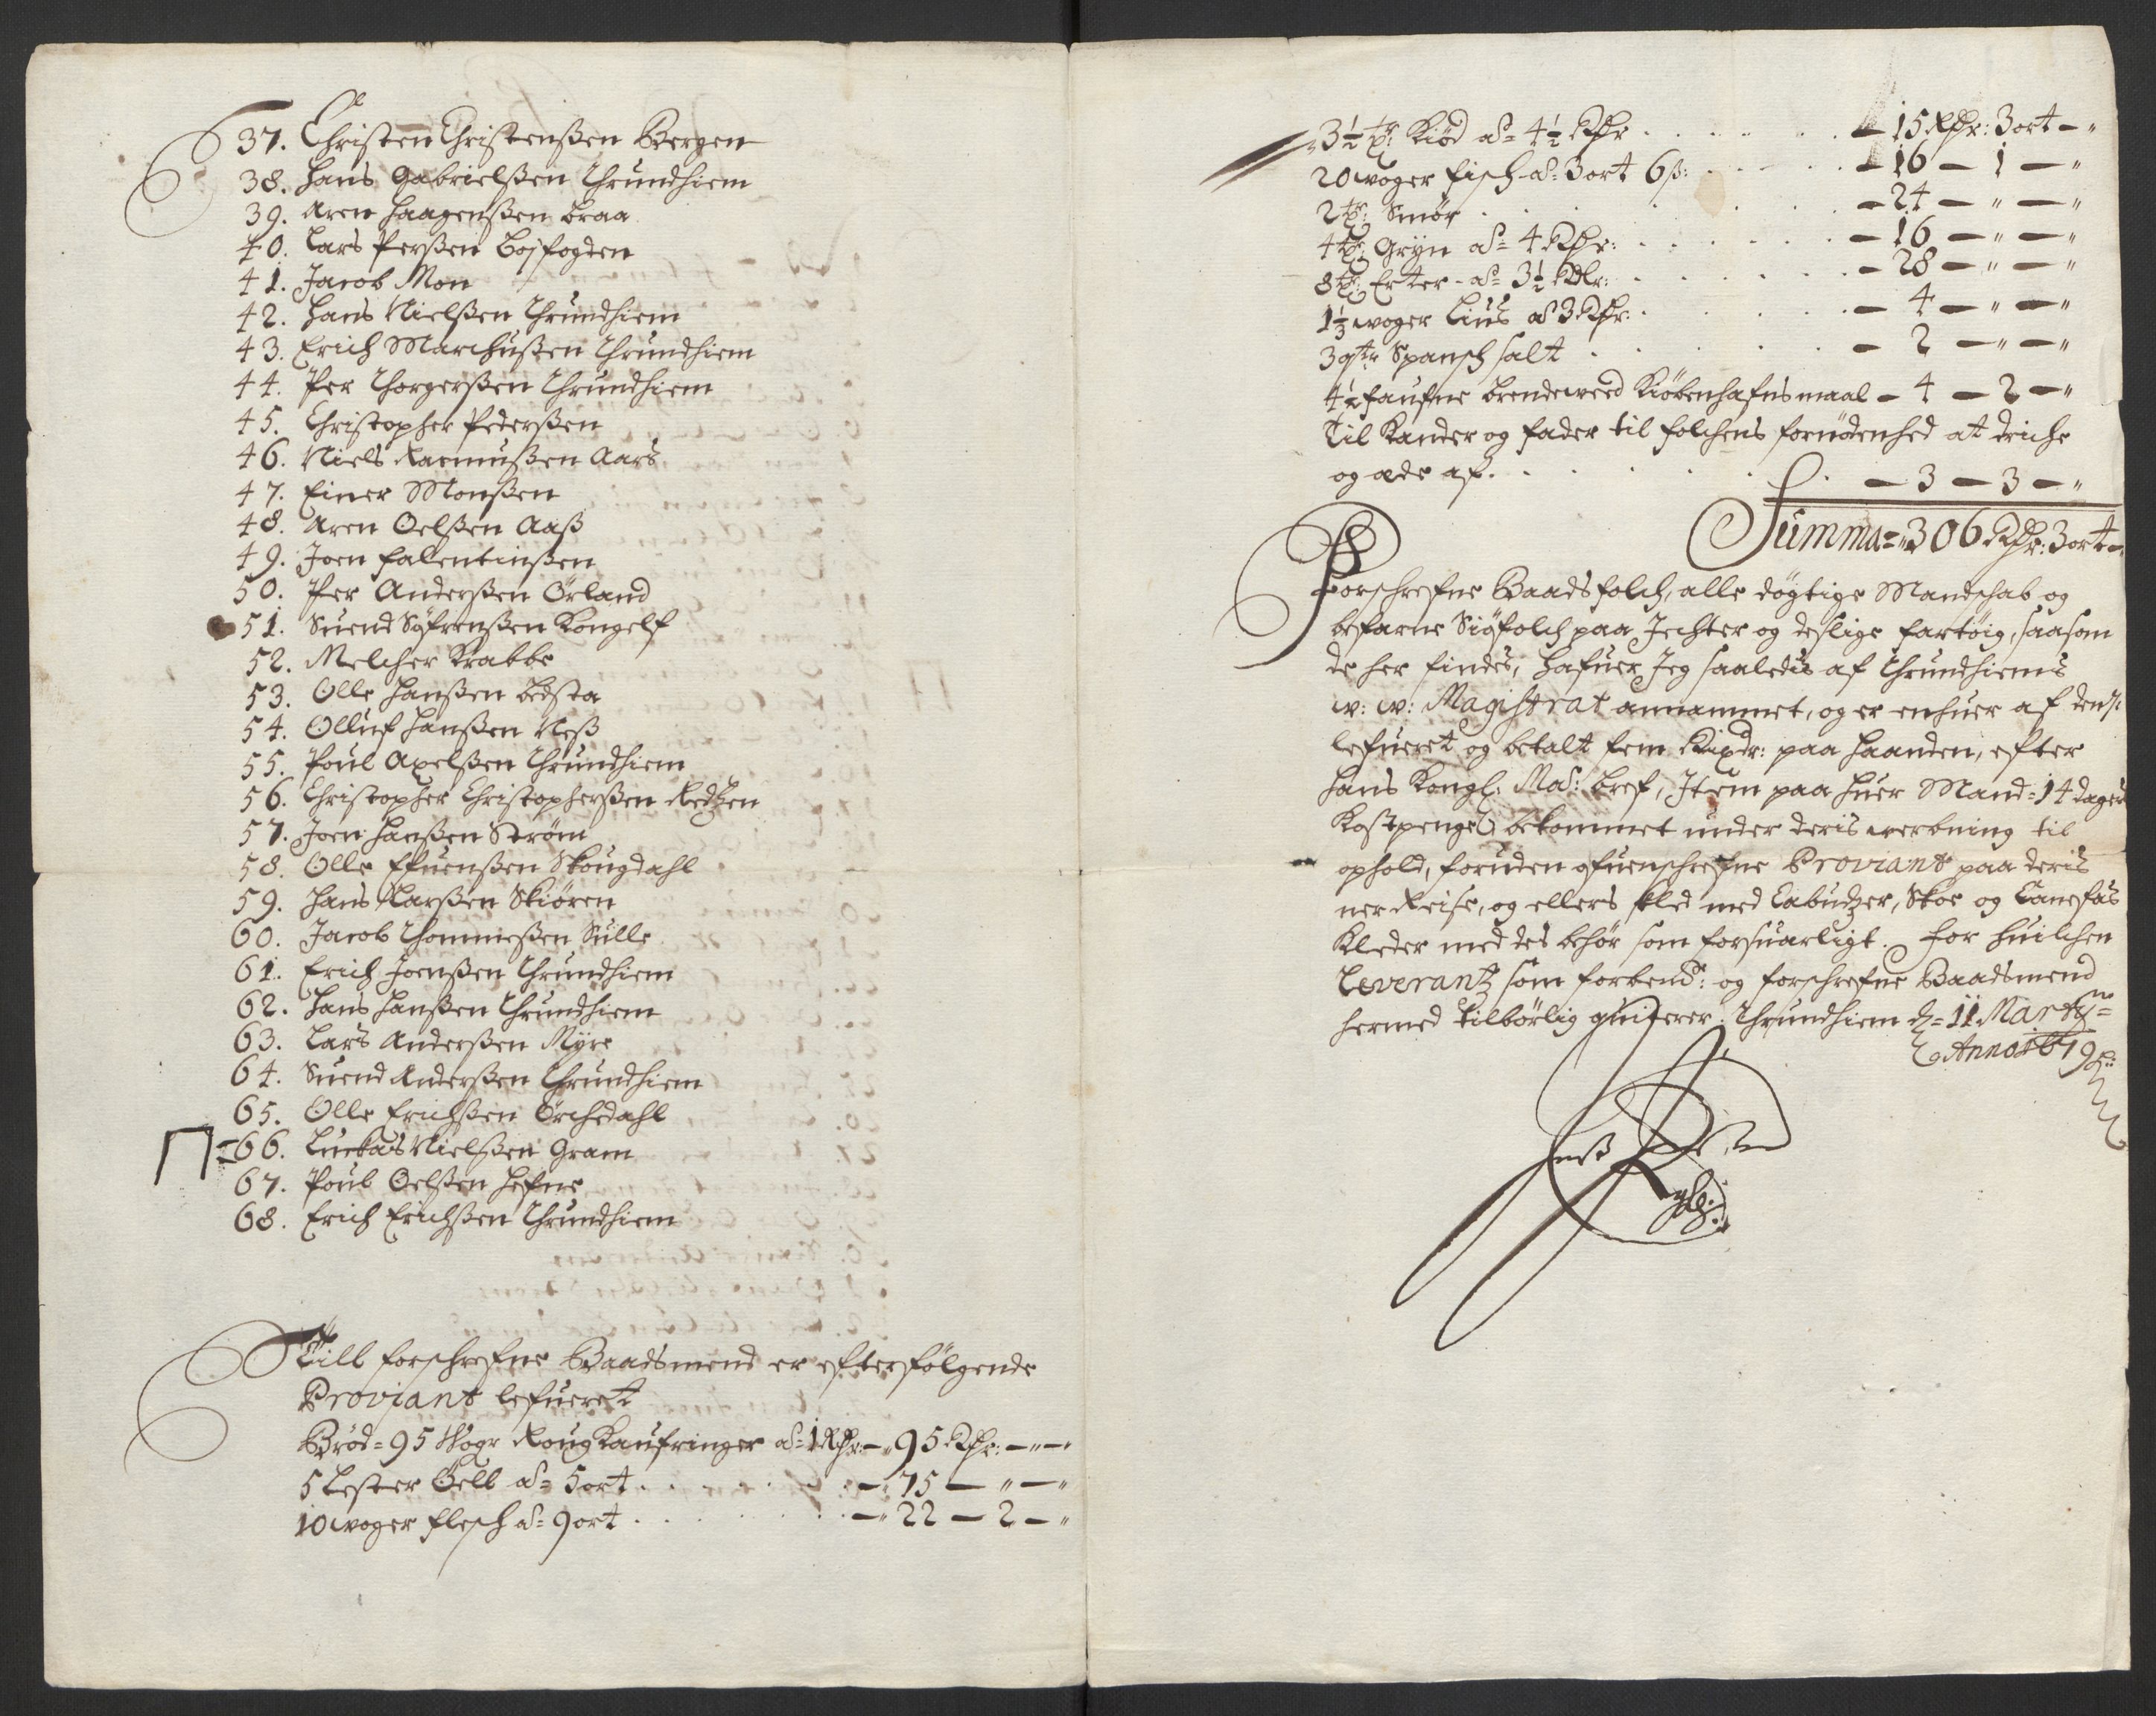 37. Christen Christenßen Bergen
38. Hans Gabrielßen Thrundhiem
39. Aren Haagenßen Braa
40. Lars Perßen Bosfogden
41. Jacob Mon
42. Hans Nielßen Thrundhiem
43. Erich Marchußen Thrundhiem
44. Per Thorgerßen Thrundhiem
45. Christopher Pederßen
46. Niels Rasmußen Aars
47. Einer Monßen
48. Aren Oelßen Aaß
49. Joen Falentinßen
50. Per Anderßen Örland
51. Suend Syfrenßen Kongelf
52. Melcher Krabbe
53. Olle Hanßen Edsta
54. Olluf Hanßen Neß
55. Poul Axelßen Thrundhiem
56. Christopher Christopherßen Redtzen
57. Joen Hanßen Ström
58. Olle Efuenßen Skougdahl
59. Hans Larßen Skiören
60. Jacob Thommeßen Sülle
61. Erich Joenßen Thrundhiem
62. Hans Hanßen Thrundhiem
63. Lars Anderßen Myre
64. Suend Anderßen Thrundhiem
65. Olle Erichßen Örchedahl
66. Luckas Nielßen Gram
67. Poul Oelßen Hefne
68. Erich Erichßen Thrundhiem
Till forschrefne Baadsmend er efterfölgende
Proviant lefueret
Bröd = 95 Wogr Roug Kaufringer a 1 Rdr: – 95 Rdr: – " – "
5 Lester Öell a = 5 ort . . . – 75 – " – "
10 woger flesch a = 9 ort . . . – 22 – 2 – "
3½ tr: Kiöd a = 4½ Rdr . . . – 15 Rdr: 3 ort – "
20 woger fisch a = 3 ort 6 ß: . . . – 16 – 1 – "
2 tr: Smör . . . – 24 – " – "
4 tr: Gryn a = 4 Rdr: . . . – 16 – " – "
8 tr: Erter a = 3½ Rdr: . . . – 28 – " – "
1⅓ woger Lius a 3 Rdr: . . . – 4 – " – "
3 qtr Spansch salt . . . – 2 – " – "
4½ faufne Brendeweed Kiöbenhafns maal – 4 – 2 – "
Til Kander og fader til folchens fornödenhed at driche
og æde af. . . . – 3 – 3 – "
Summa = 306 Rdr: 3 ort –
Forschrefne Baadsfolch, alle dögtige Mandschab og
befarne Siöfolch paa Jechter og deslige fartöig, saasom
de her findes, hafuer Jeg saaledis af Thrundhiems
w: w: Magistrat annammet, og er enhuer af dens:
lefueret og betalt fem Rixdr: paa haanden, efter
hans Kongl: Ma: bref, Item paa huer Mand = 14 dagers
Kostpenge, bekommet under deris werbning til
ophold, foruden ofuenschrefne Proviant paa deris
ner Reise, og ellers kled med Cabudzer, Skoe og Canefas
Kleder med des behör som forsuarligt. For huilchen
Leverantz som forbend: og forschrefne Baadsmend
hermed tilbörlig quiterer. Thrundhiem d = 11 Marty
Anno 1679